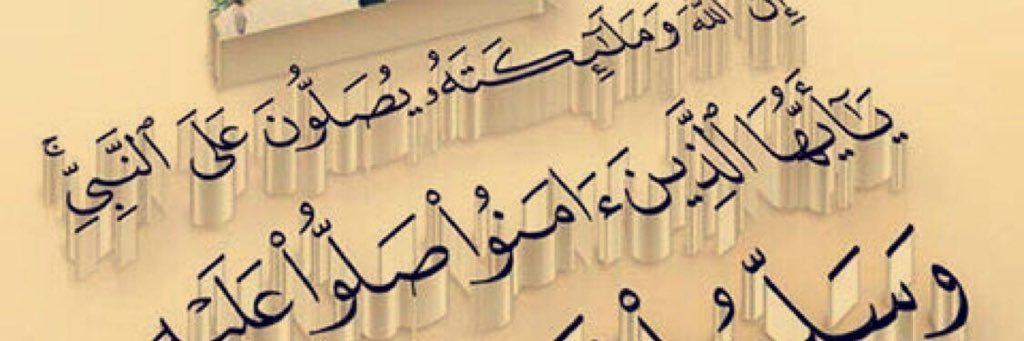 إِنَّ ٱللَّهَ وَمَلَٰٓئِكَتَهُۥ يُصَلُّونَ عَلَى ٱلنَّبِيِّۚ
يَٰٓأَيُّهَا ٱلَّذِينَ ءَامَنُوا۟ صَلُّوا۟ عَلَيْهِ